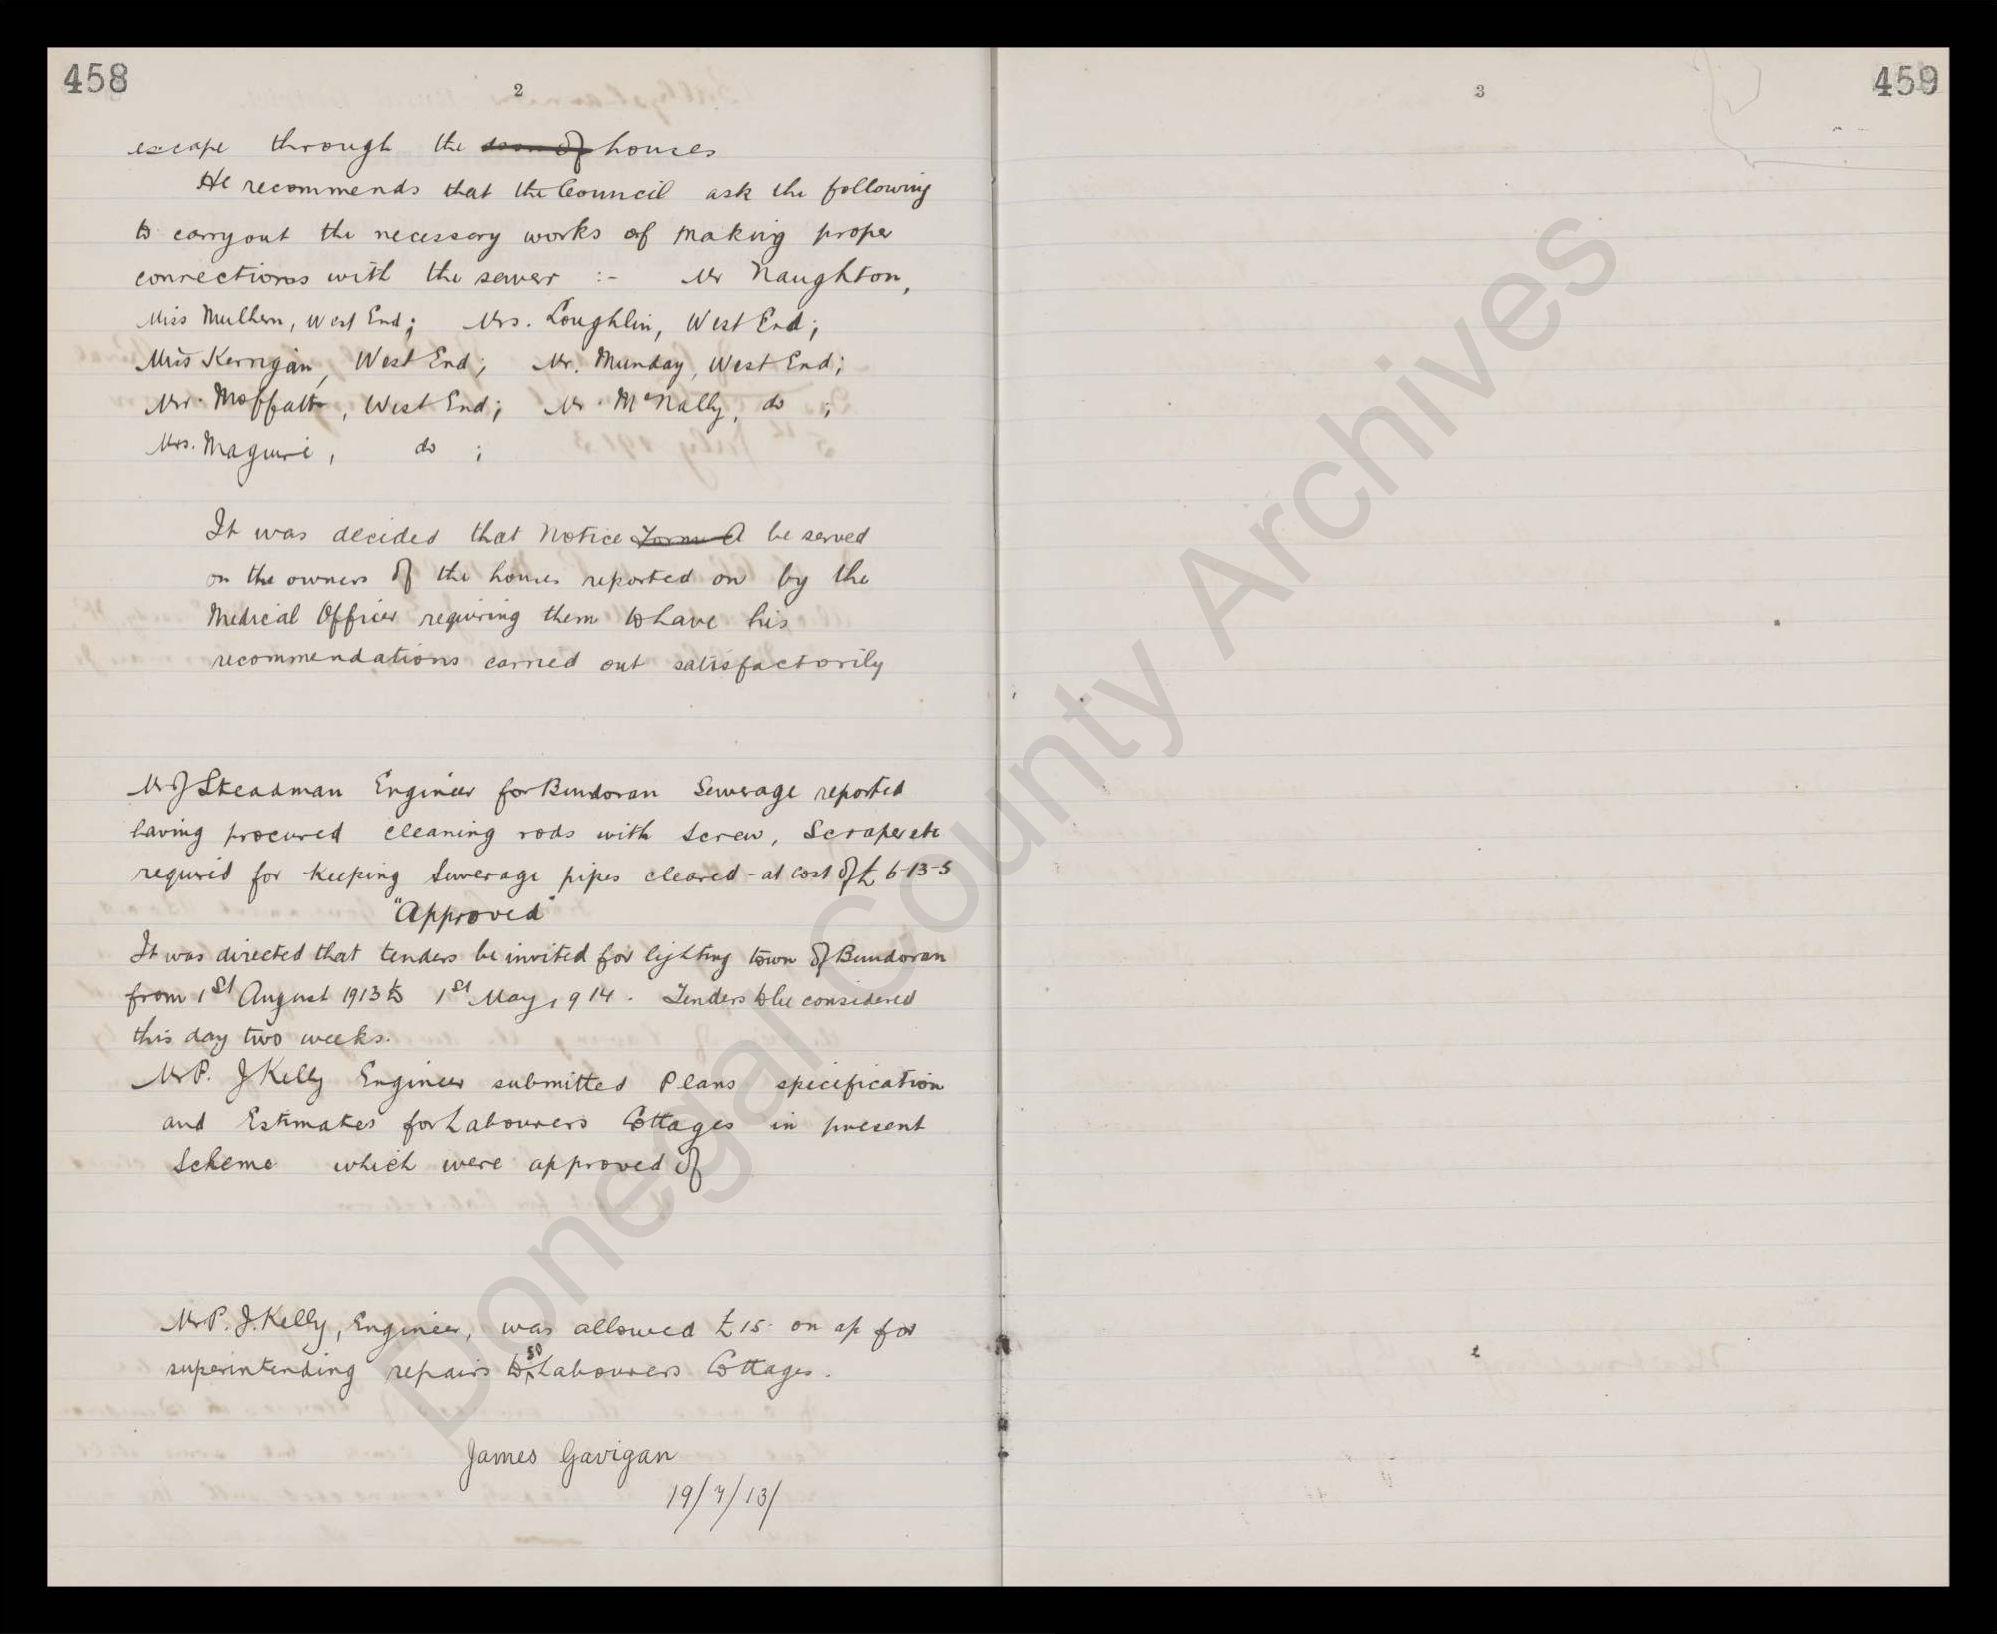 458
2
escape through the houses
He recommends that the Council ask the following
to carry out the necessary works of making proper
connections with the sewer :- Mr Naughton,
Miss Mulhern, West End; Mrs. Loughlin, West End;
Miss Kerrigan, West End; Mr. Munday, West End;
Mr. Moffatt, West End; Mr. McNally, do ;
Mrs. Maguire, do ;
It was decided that Notice Form A be served
on the owners of the houses reported on by the
Medical Officer requiring them to have his
recommendations carried out satisfactorily
Mr J Steadman Engineer for Bundoran Sewerage reported
having procured cleaning rods with screw, Scraper etc
required for keeping Sewerage pipes cleared - at cost of £6-13-5
"Approved"
It was directed that tenders be invited for lighting town of Bundoran
from 1st August 1913 to 1st May 1914. Tenders to be considered
this day two weeks.
Mr P. J Kelly Engineer submitted Plans specification
and Estimates for Labourers Cottages in present
Scheme which were approved of
Mr P. J. Kelly, Engineer, was allowed £15 on a/c for
superintending repairs to 50 Labourers Cottages.
James Gavigan
19/7/13/
3
459
Donegal County Archives